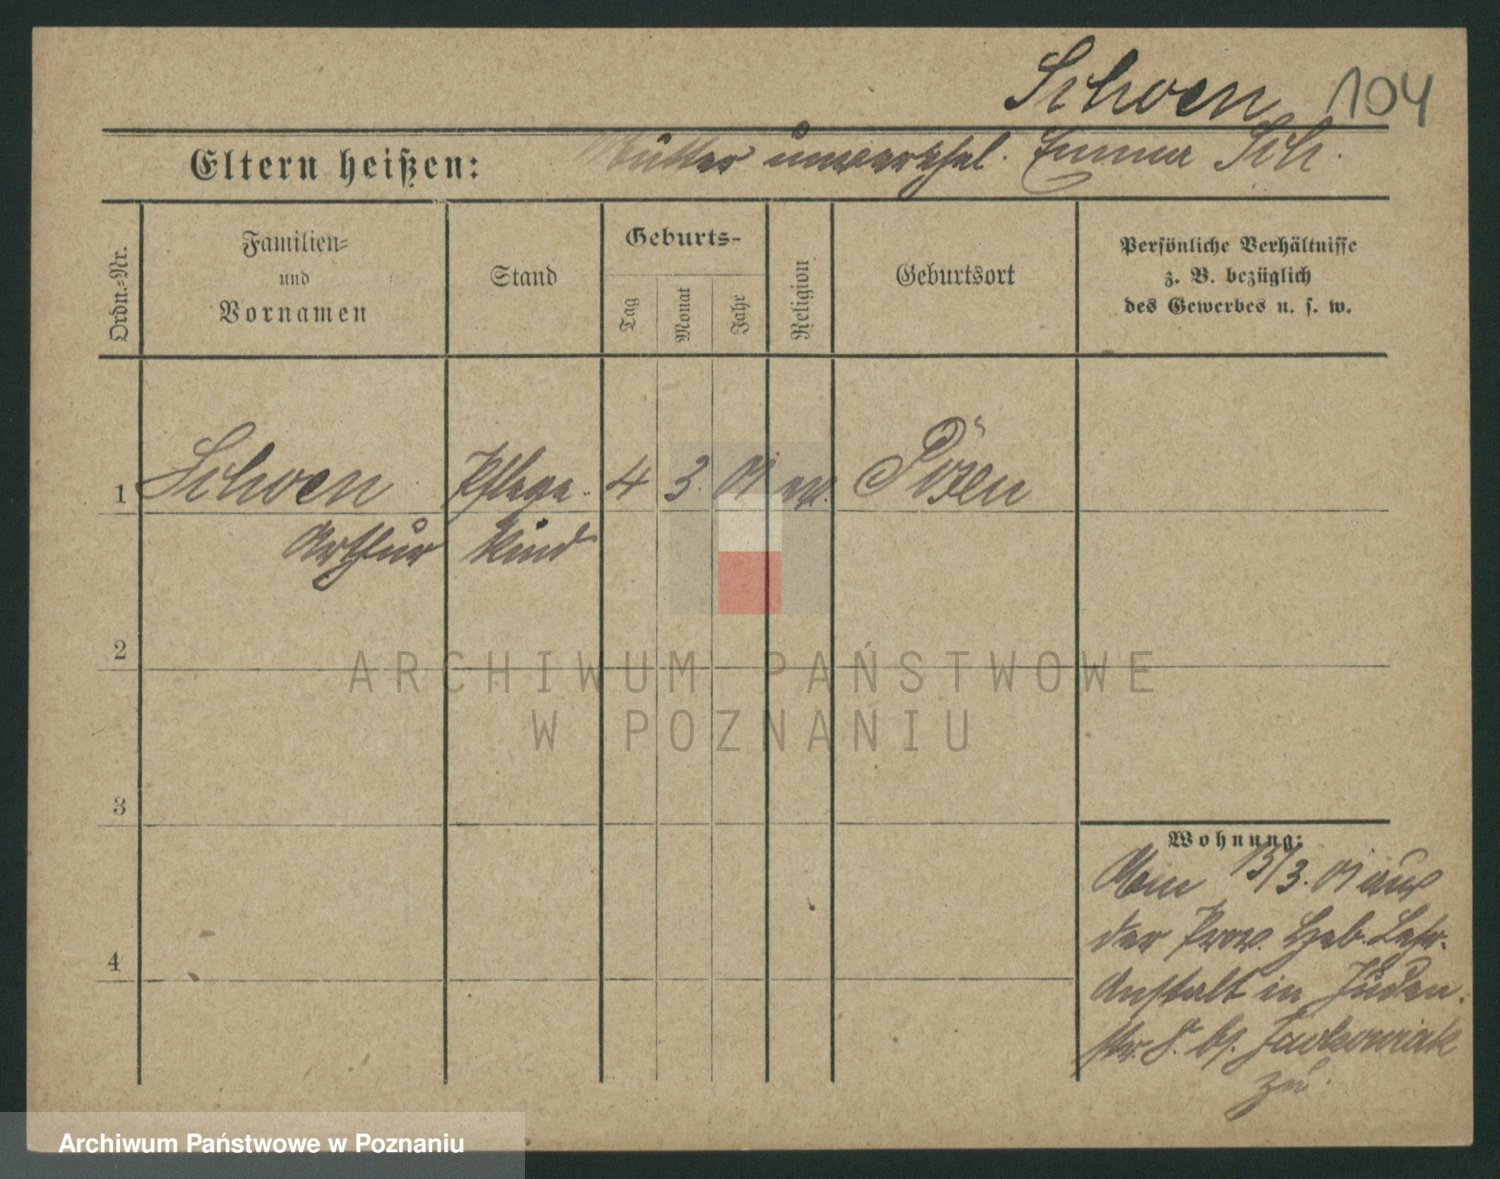 Schoen 104
Eltern heißen: Mutter unverehel. Emma Sch.
Ordn.-Nr.
Familien-
und
Vornamen
Stand
Geburts-
Tag
Monat
Jahr
Religion
Geburtsort
Persönliche Verhältnisse
z. B. bezüglich
des Gewerbes u. s. w.
1 Schoen Pflege- 4 3. 01 ev. Posen
Arthur Kind
2
ARCHIWUM PAŃSTWOWE
W POZNANIU
3
Wohnung:
Am 13/3. 01 aus
der Prov. Heb. Lehr-
Anstalt in Juden-
str. 8. bei
zu.
4
Archiwum Państwowe w Poznaniu